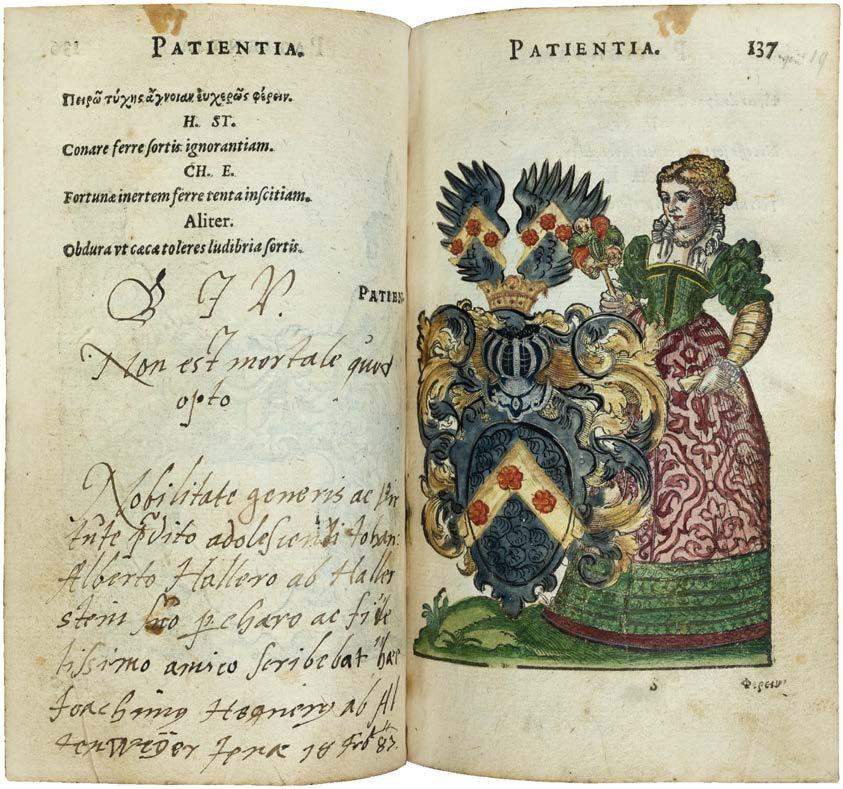 PATIENTIA.
Πειρῶ τύχης ἄγνοιαν εὐχερῶς φέρειν.
H. ST.
Conare ferre sortis ignorantiam.
CH. E.
Fortunæ inertem ferre tenta inscitiam.
Aliter.
Obdura vt cæca toleres ludibria sortis.
PATIEN
Non est mortale quod
opto
Nobilitate generis ac vir
tute p̄dito adolescenti Iohan:
Alberto Hallero ab Haller
stein suo p charo ac fide
lissimo amico scribebat hæc
Joachimus ab Al
tenWeÿer Jenæ 18 83.
PATIENTIA.
137
19
S
Φέρειν